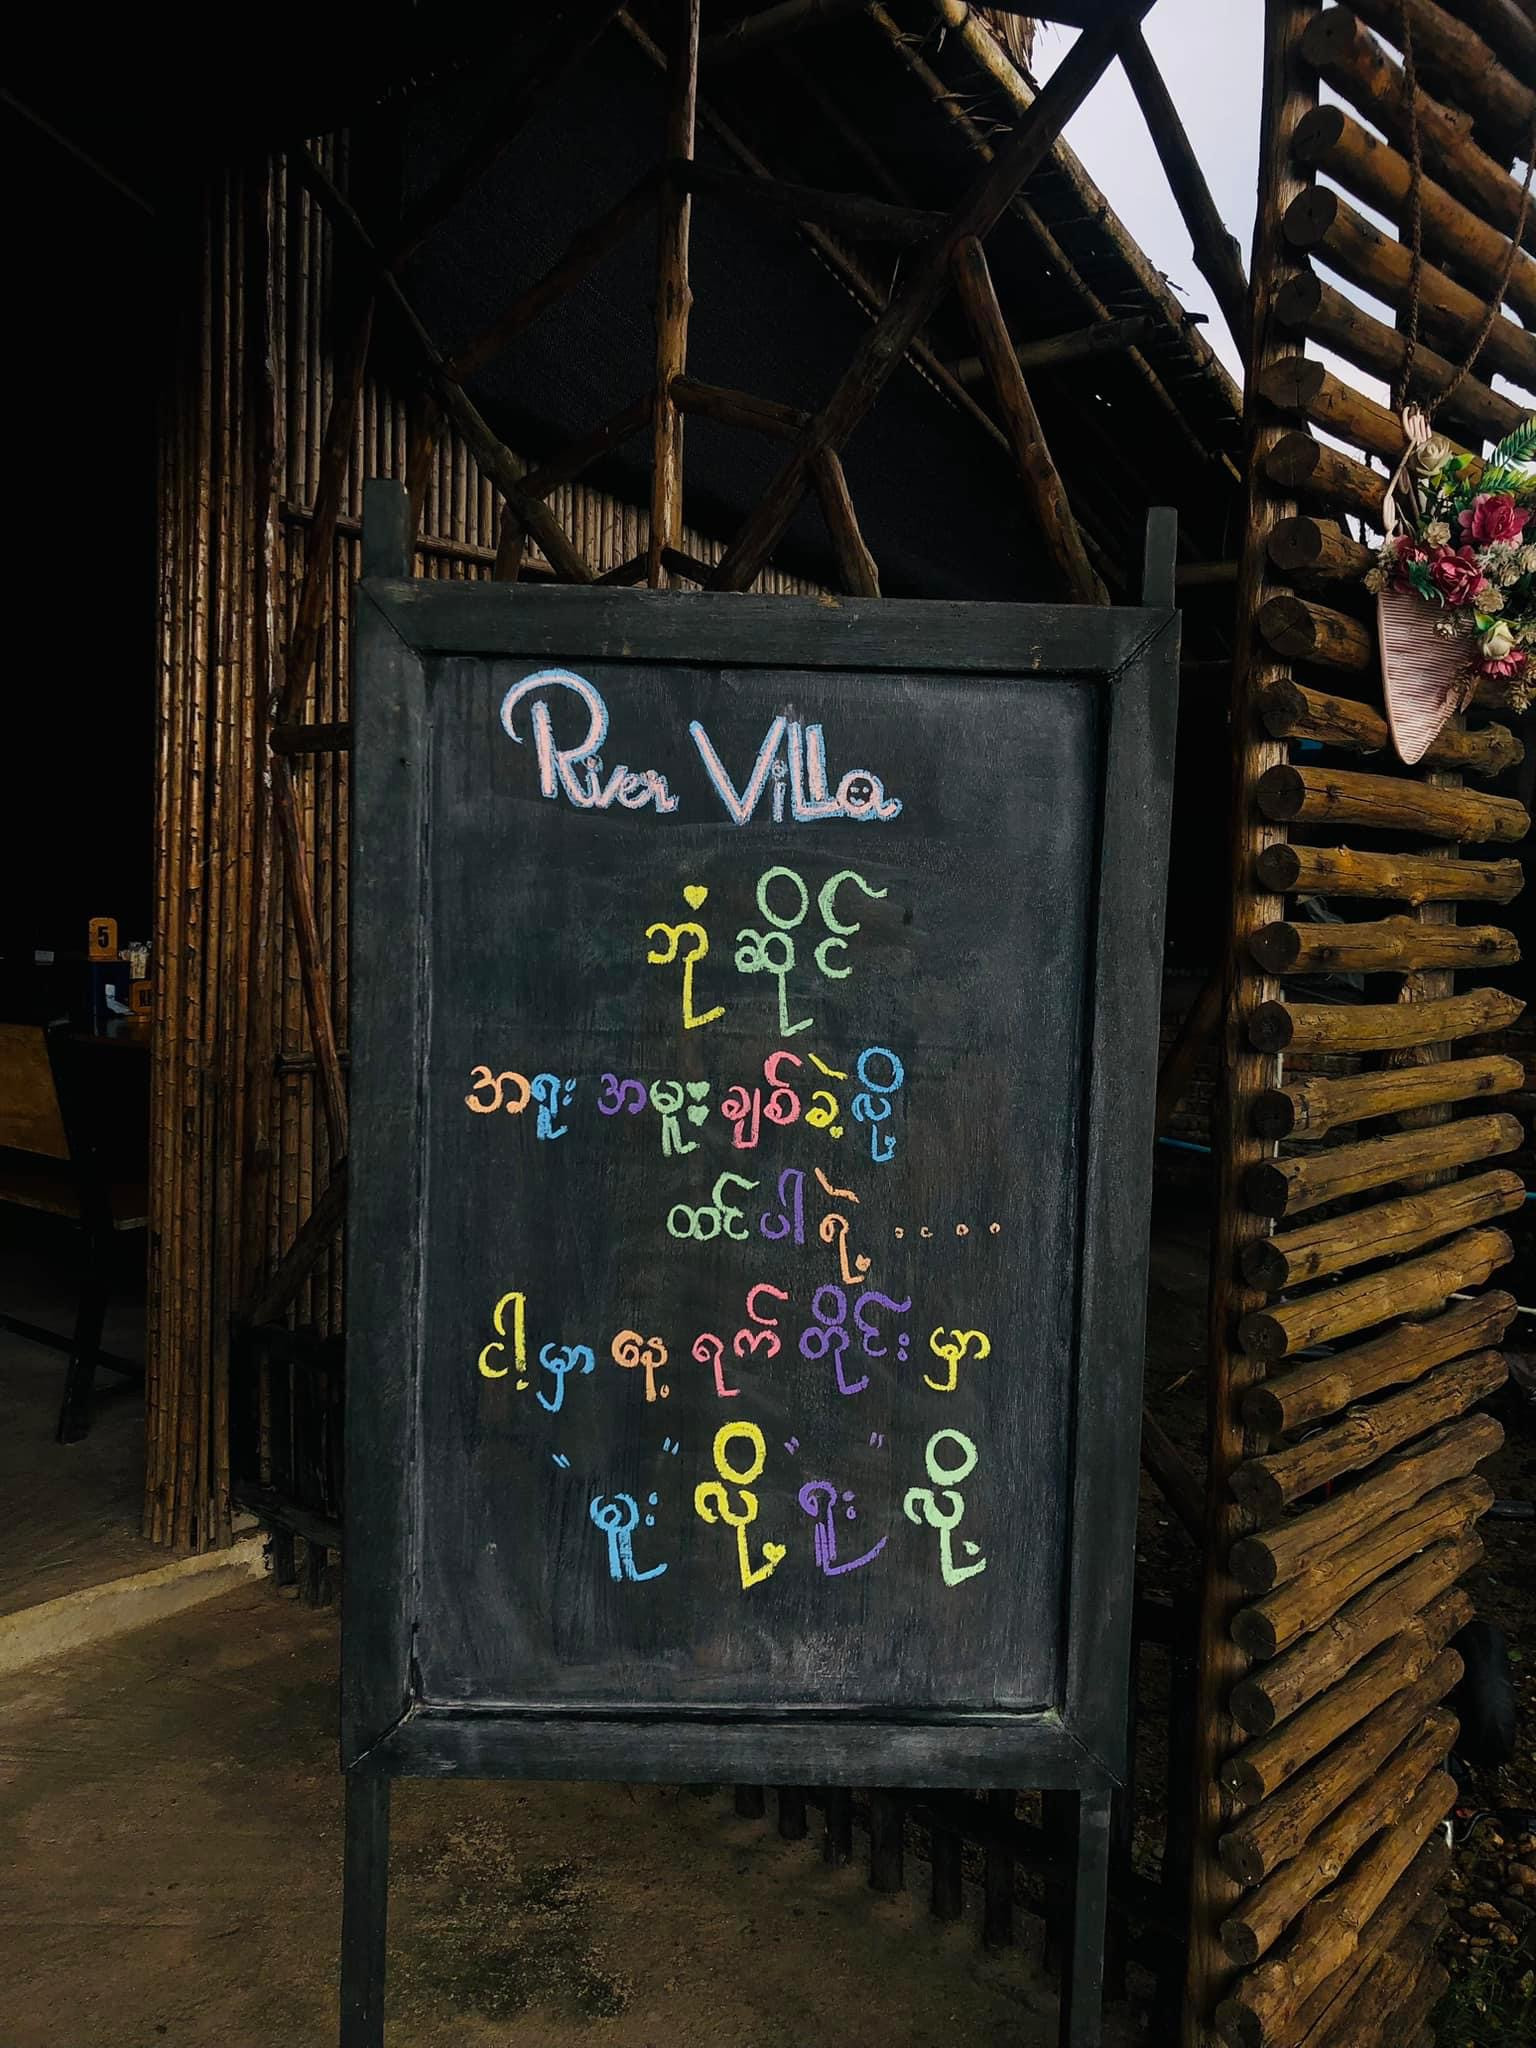 River Villa
ဘုံ ဆိုင်
အရူး အမူး ချစ်ခဲ့လို့
ထင်ပါရဲ့ ....
ငါ့မှာ နေ့ ရက် တိုင်း မှာ
" " မူး လို့ " " ရူး လို့
5